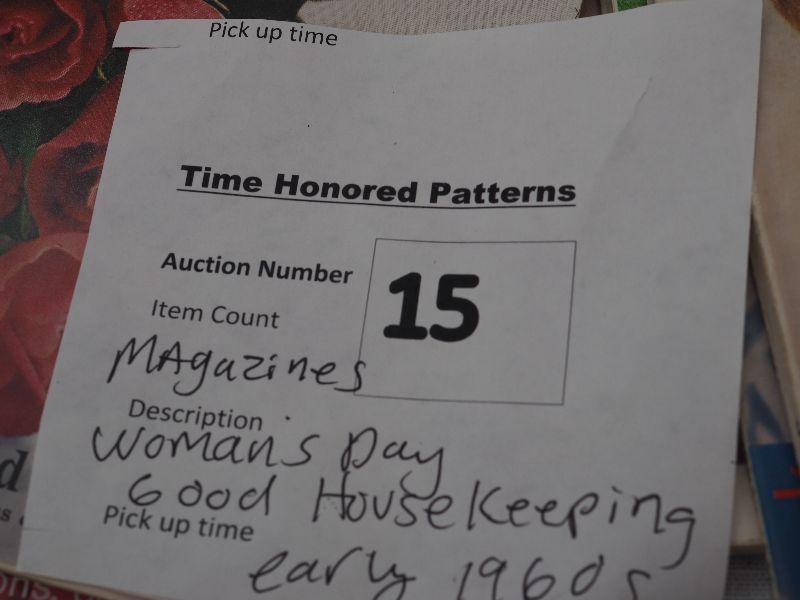 Pick up time
Time Honored Patterns
Auction Number 15
Item Count
MAgazines
Description
Woman's Day
Good HouseKeeping
Pick up time
early 1960s